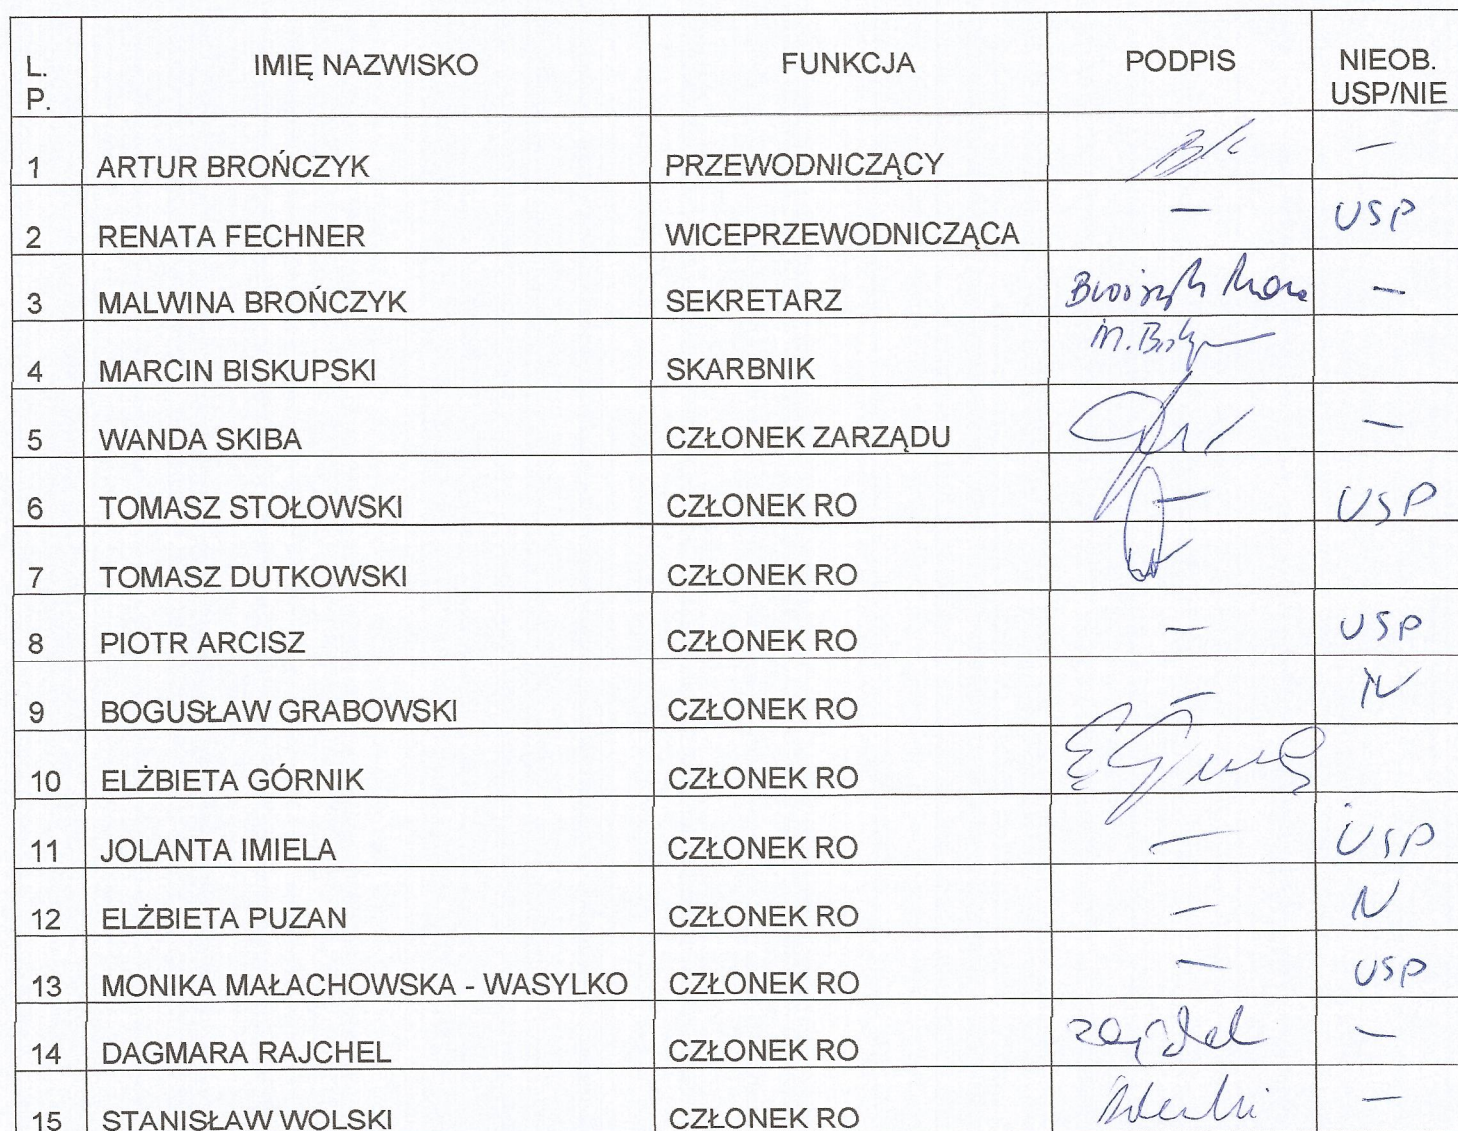 L. P. IMIĘ NAZWISKO FUNKCJA PODPIS NIEOB. USP/NIE
1 ARTUR BROŃCZYK PRZEWODNICZĄCY —
2 RENATA FECHNER WICEPRZEWODNICZĄCA — USP
3 MALWINA BROŃCZYK SEKRETARZ —
4 MARCIN BISKUPSKI SKARBNIK
5 WANDA SKIBA CZŁONEK ZARZĄDU —
6 TOMASZ STOŁOWSKI CZŁONEK RO — USP
7 TOMASZ DUTKOWSKI CZŁONEK RO
8 PIOTR ARCISZ CZŁONEK RO — USP
9 BOGUSŁAW GRABOWSKI CZŁONEK RO — N
10 ELŻBIETA GÓRNIK CZŁONEK RO
11 JOLANTA IMIELA CZŁONEK RO — USP
12 ELŻBIETA PUZAN CZŁONEK RO — N
13 MONIKA MAŁACHOWSKA - WASYLKO CZŁONEK RO — USP
14 DAGMARA RAJCHEL CZŁONEK RO —
15 STANISŁAW WOLSKI CZŁONEK RO —